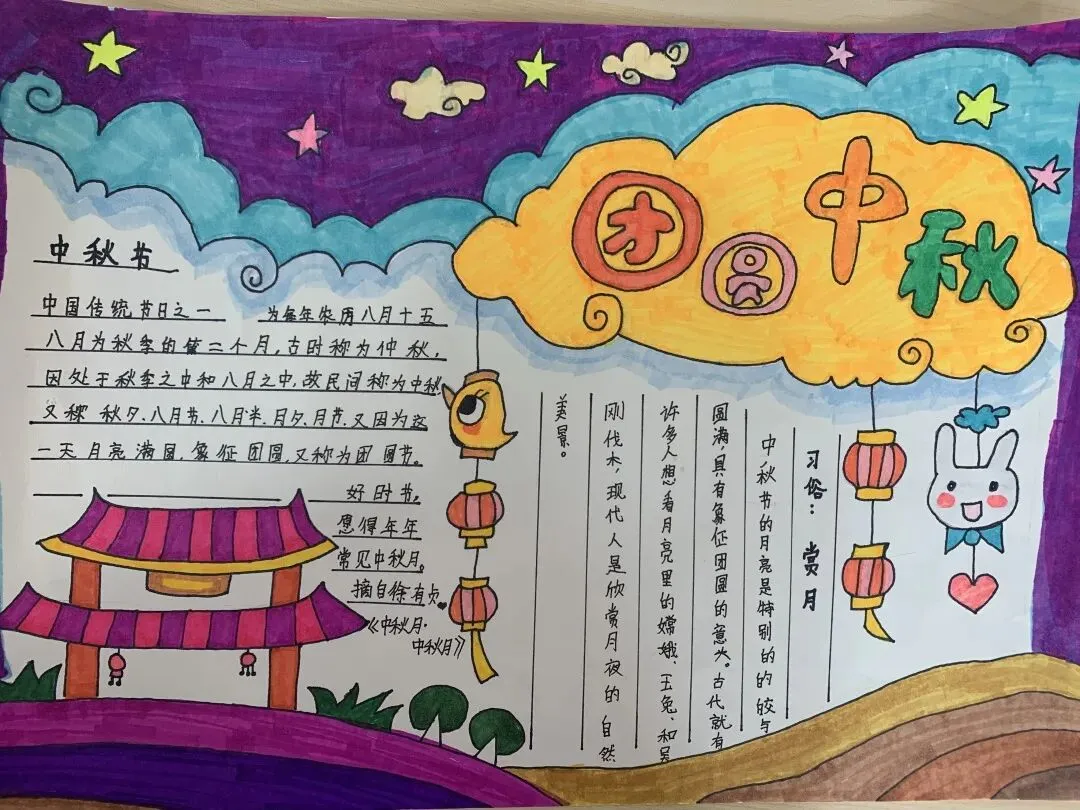 团圆中秋
中秋节
中国传统节日之一 为每年农历八月十五
八月为秋季的第二个月,古时称为仲秋,
因处于秋季之中和八月之中,故民间称为中秋
又称秋夕、八月节、八月半、月夕、月节,又因为这
一天月亮满圆,象征团圆,又称为团圆节。
好时节,
愿得年年
常见中秋月。
摘自徐有贞
《中秋月·
中秋月》
习俗:赏月
中秋节的月亮是特别的的皎与
圆满,具有象征团圆的意义。古代就有
许多人想看月亮里的嫦娥、玉兔、和吴
刚伐木,现代人是欣赏月夜的自然
美景。